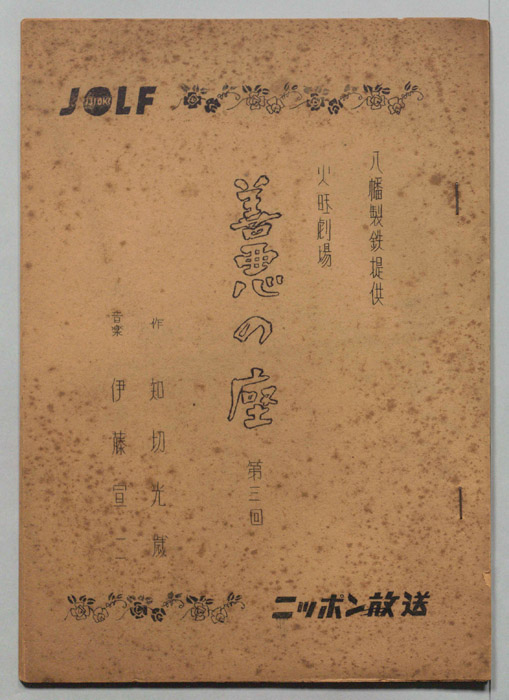 JOLF
1310KC
八幡製鉄提供
火旺劇場
善悪の座
第三回
作 知切光歳
音楽 伊藤宣二
ニッポン放送